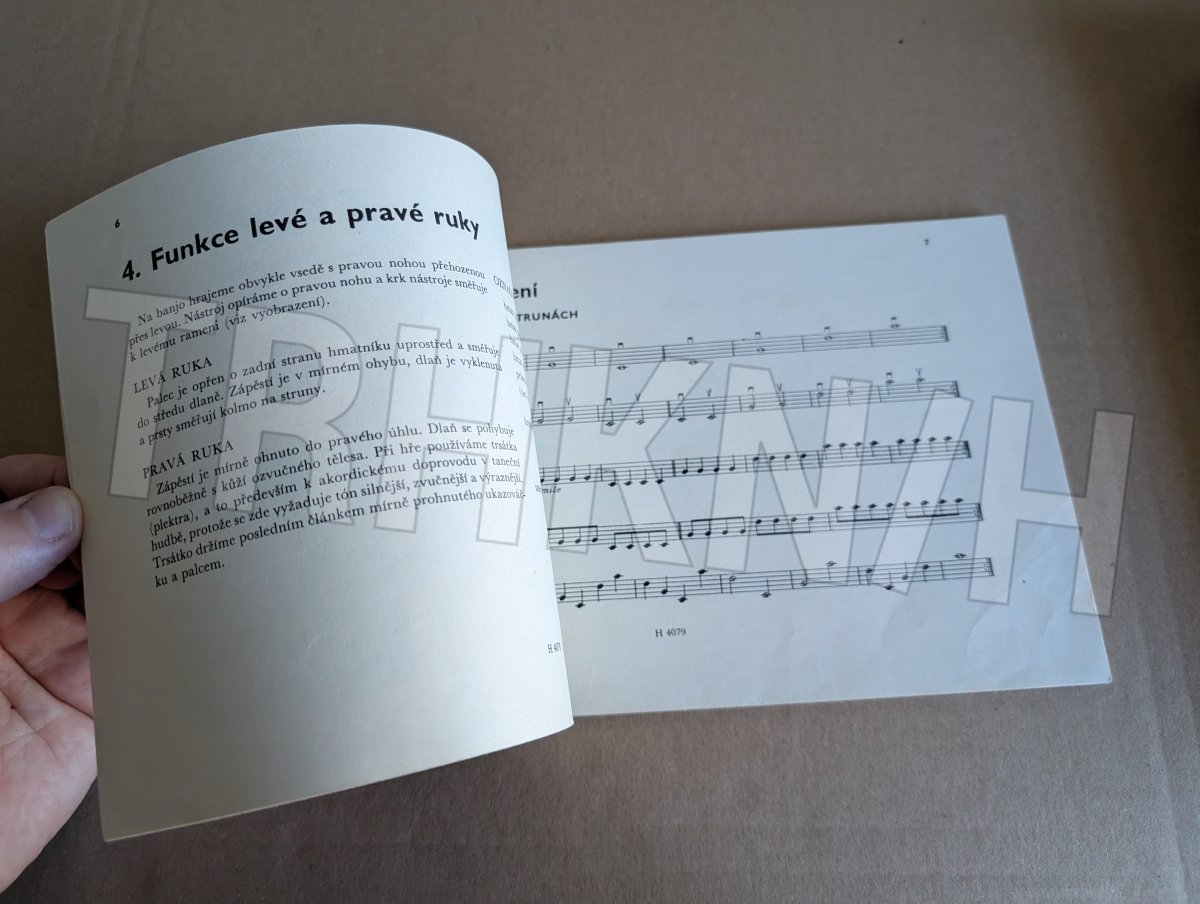 6
4. Funkce levé a pravé ruky
Na banjo hrajeme obvykle vsedě s pravou nohou přehozenou
přes levou. Nástroj opíráme o pravou nohu a krk nástroje směřuje
k levému rameni (viz vyobrazení).
LEVÁ RUKA
Palec je opřen o zadní stranu hmatníku uprostřed a směřuje
do středu dlaně. Zápěstí je v mírném ohybu, dlaň je vyklenuta
a prsty směřují kolmo na struny.
PRAVÁ RUKA
Zápěstí je mírně ohnuto do pravého úhlu. Dlaň se pohybuje
rovnoběžně s kůží ozvučného tělesa. Při hře používáme trsátka
(plektra), a to především k akordickému doprovodu v taneční
hudbě, protože se zde vyžaduje tón silnější, zvučnější a výraznější.
Trsátko držíme posledním článkem mírně prohnutého ukazová-
ku a palcem.
H 407
7
ení
TRUNÁCH
H 4079
TRHKNIH